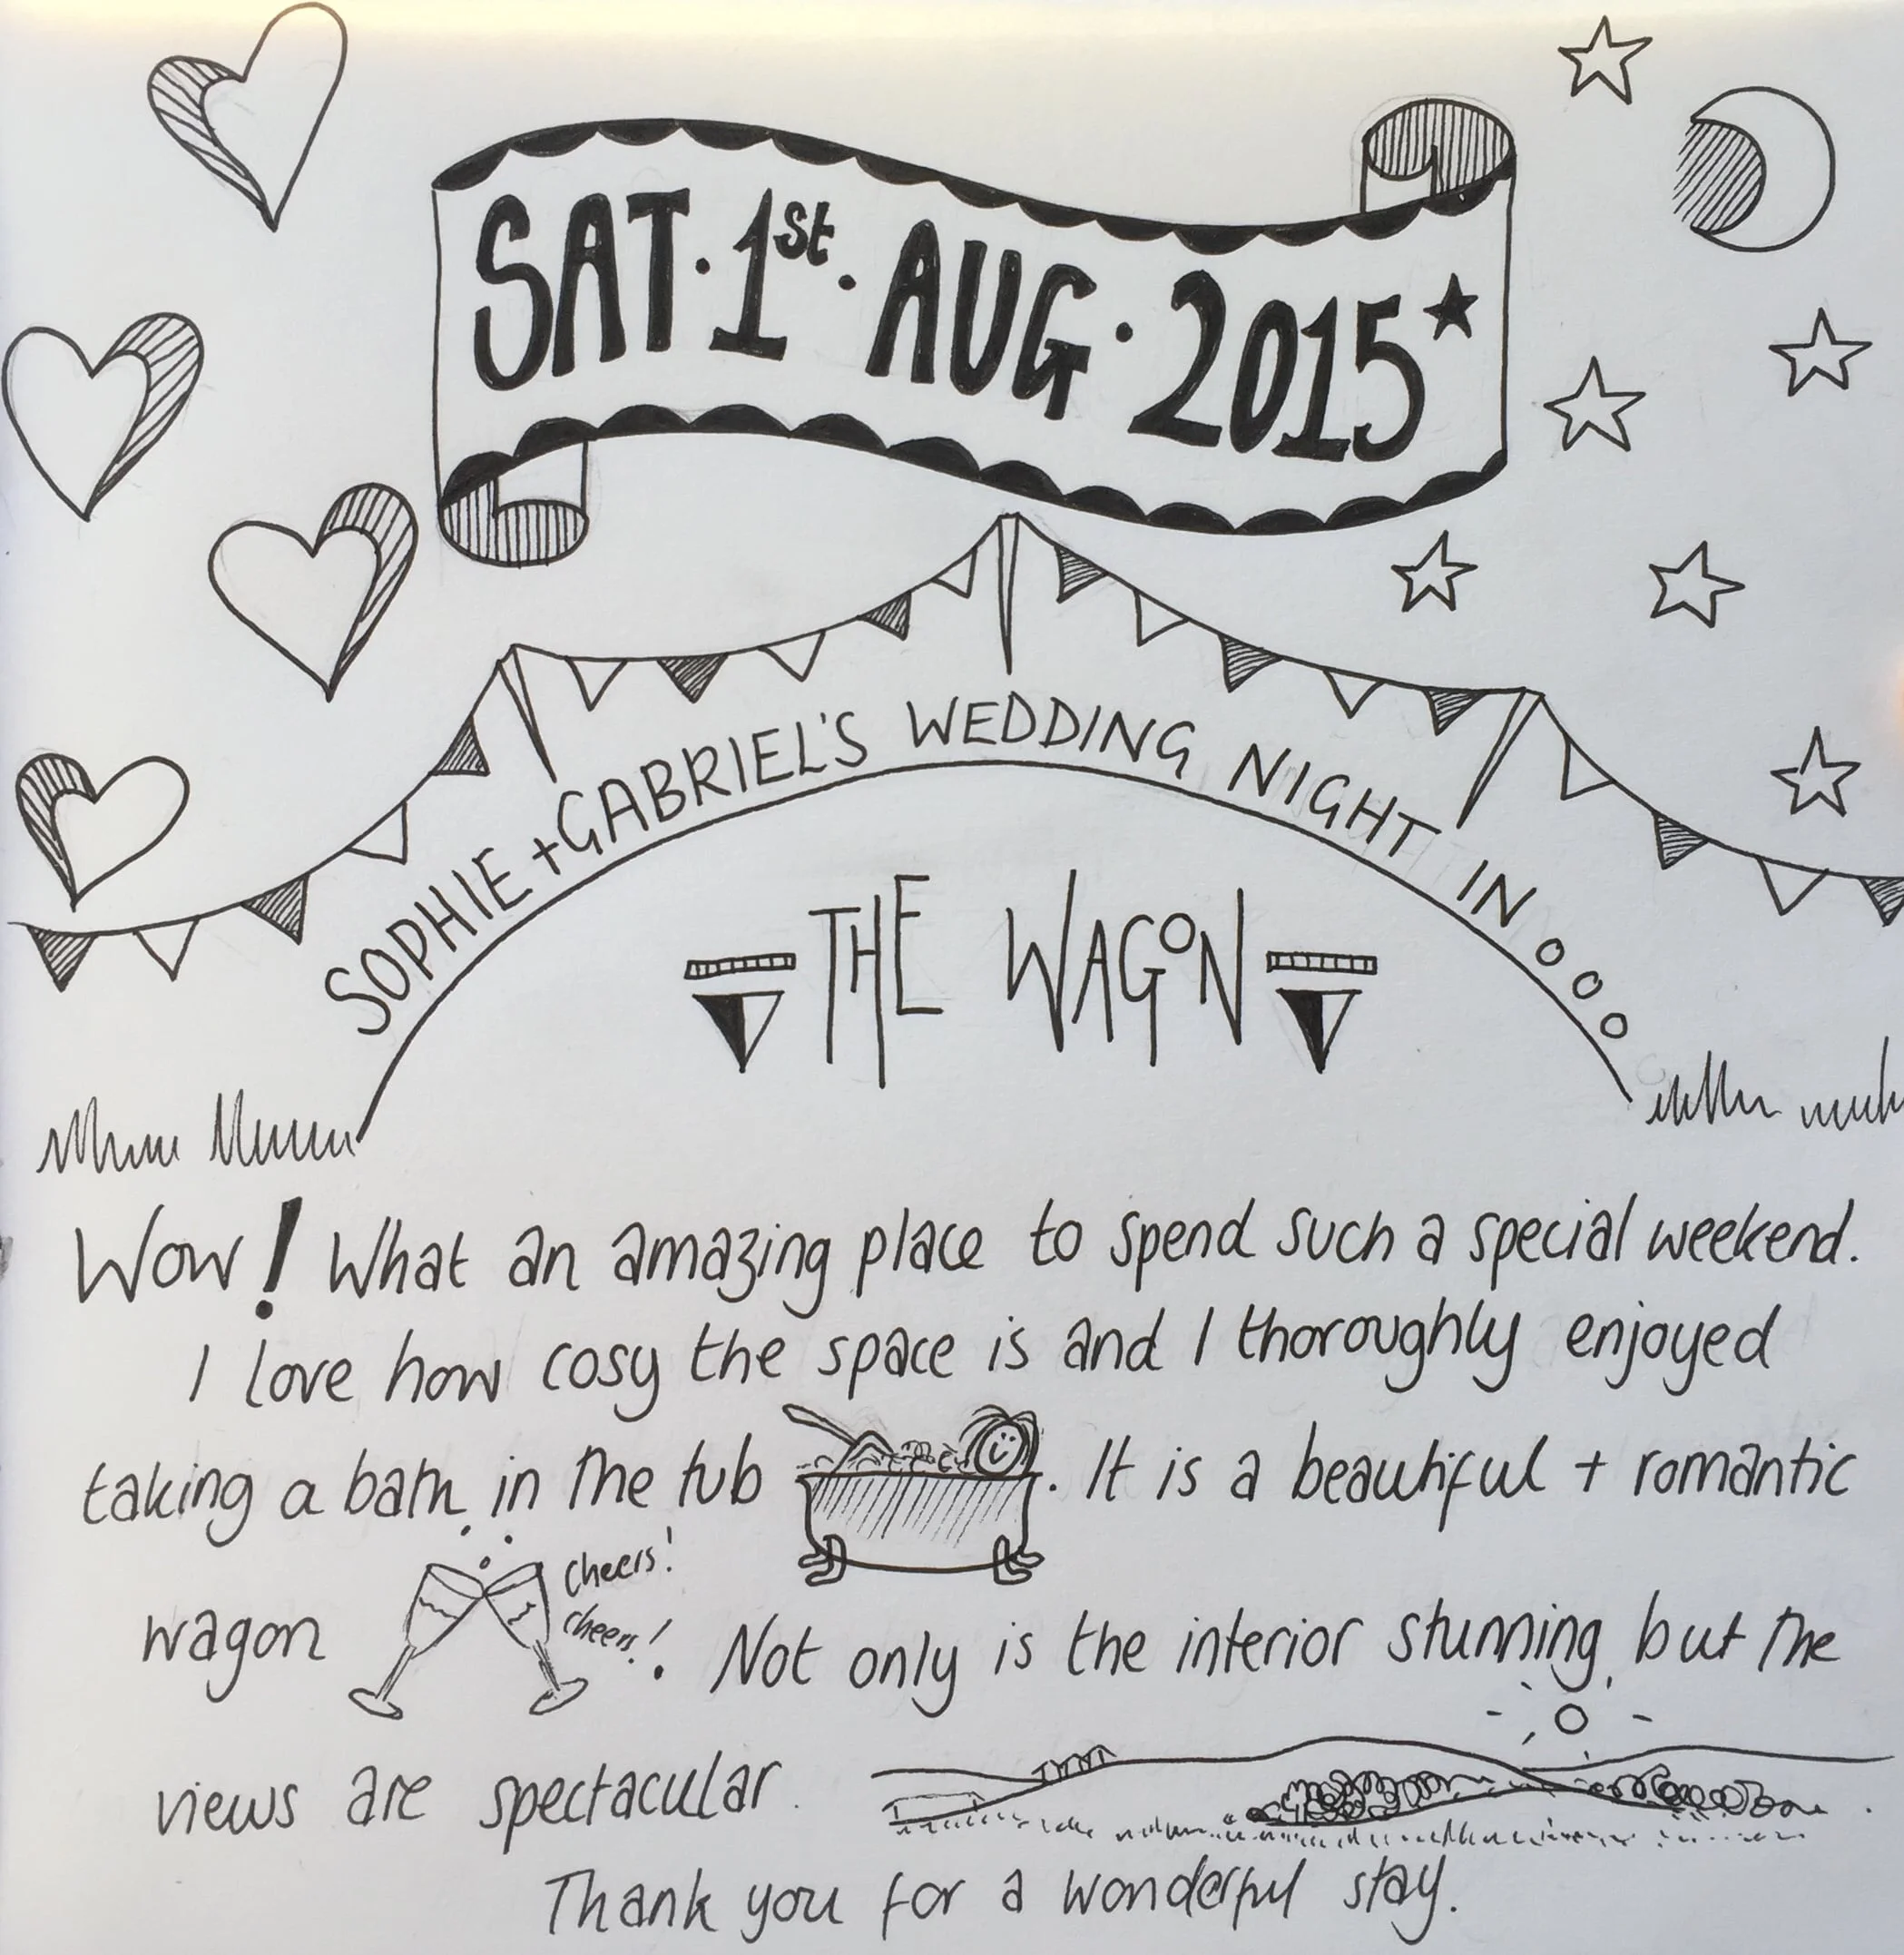 SAT · 1st · AUG · 2015
SOPHIE + GABRIEL'S WEDDING NIGHT IN ooo
THE WAGON
Wow! What an amazing place to spend such a special weekend.
I love how cosy the space is and I thoroughly enjoyed
taking a bath in the tub . It is a beautiful + romantic
cheers!
wagon cheers! . Not only is the interior stunning, but the
views are spectacular.
Thank you for a wonderful stay.